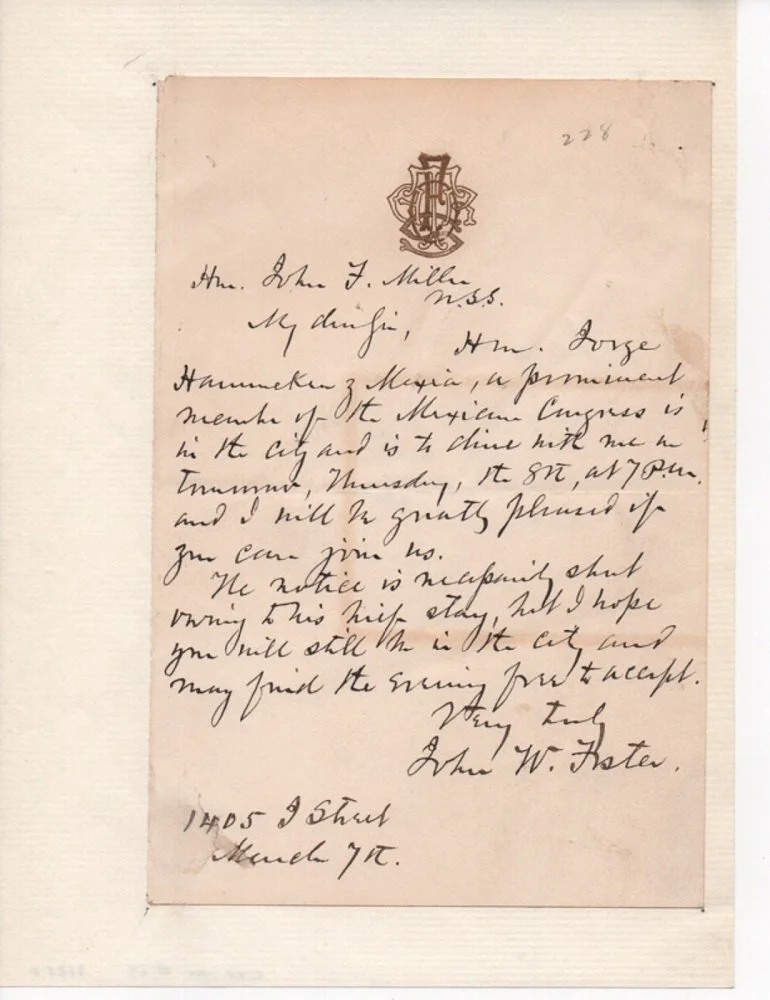 228
Hon. John F. Miller
U.S.S.
My dear Sir,
Hon. Jorge
Hammeken y Mexia, a prominent
member of the Mexican Congress is
in the city and is to dine with me on
tomorrow, Thursday, the 8th, at 7 P.m.
and I will be greatly pleased if
you can join us.
The notice is necessarily short
owing to his brief stay, but I hope
you will still be in the city and
may find the evening free to accept.
Very truly
John W. Foster.
1405 I Street
March 7th.